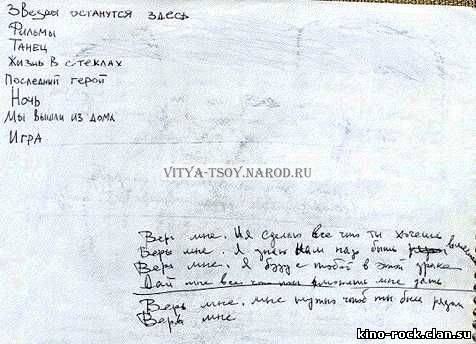 Звезды останутся здесь
Фильмы
Танец
Жизнь в стеклах
Последний герой
Ночь
Мы вышли из дома
Игра
VITYA-TSOY.NAROD.RU
Верь мне. И я сделаю все что ты хочешь
Верь мне. Я знаю нам надо быть
Верь мне. Я буду с тобой в этой
Дай мне все
Верь мне. мне нужно чтоб ты был рядом
Верь мне
kino-rock.clan.su